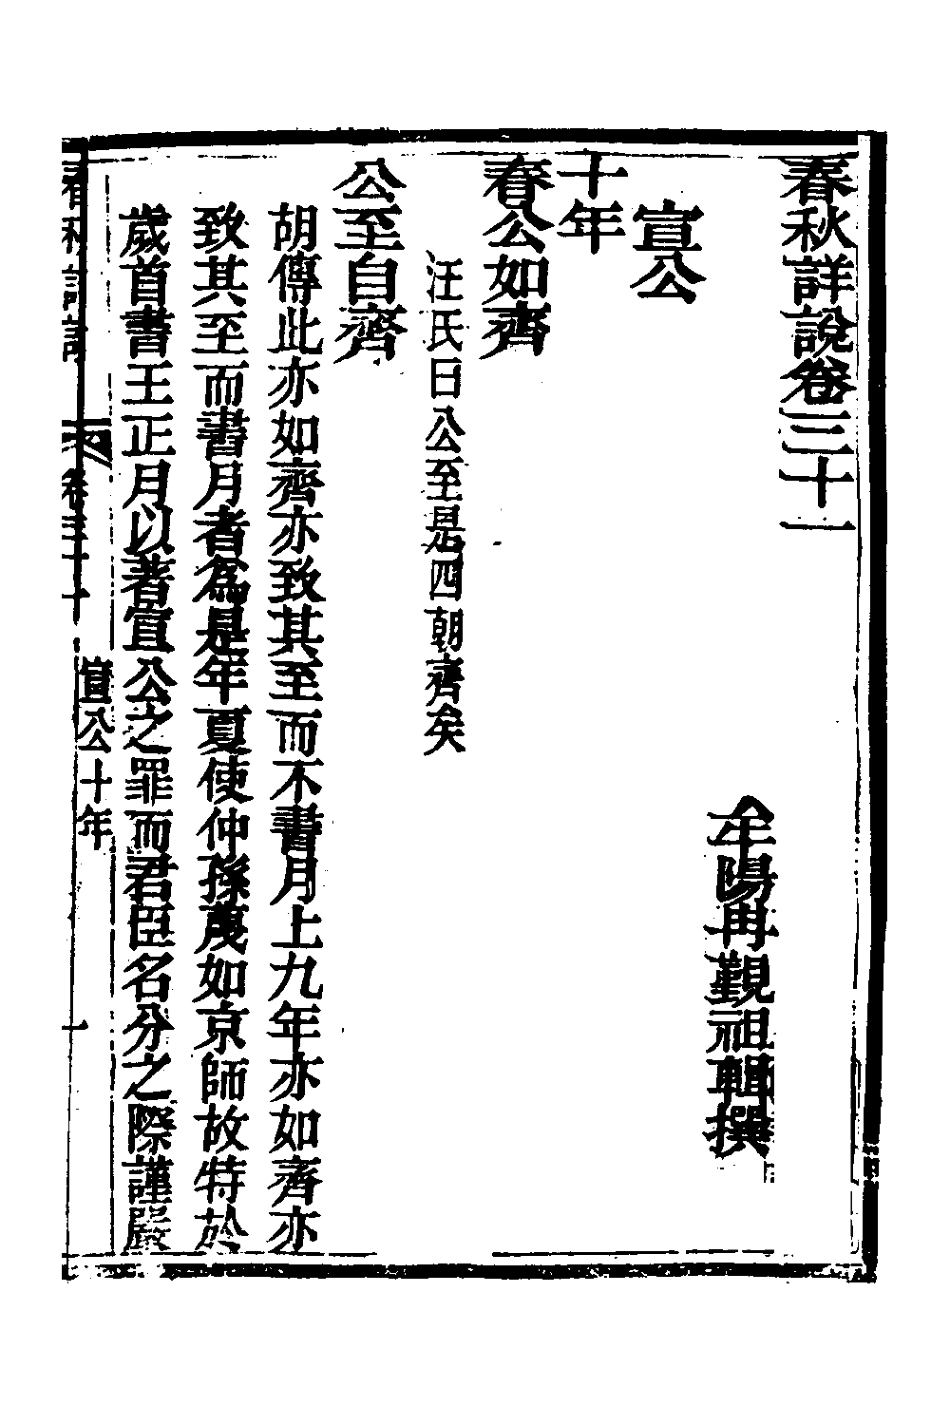 春秋詳說卷三十一
牟陽冉覲祖輯撰
宣公
十年
春公如齊
汪氏曰公至是四朝齊矣
公至自齊
胡傳此亦如齊亦致其至而不書月上九年亦如齊亦
致其至而書月者為是年夏使仲孫蔑如京師故特於
歲首書王正月以著宣公之罪而君臣名分之際謹嚴
宣公十年
春秋詳說
卷三十一
一